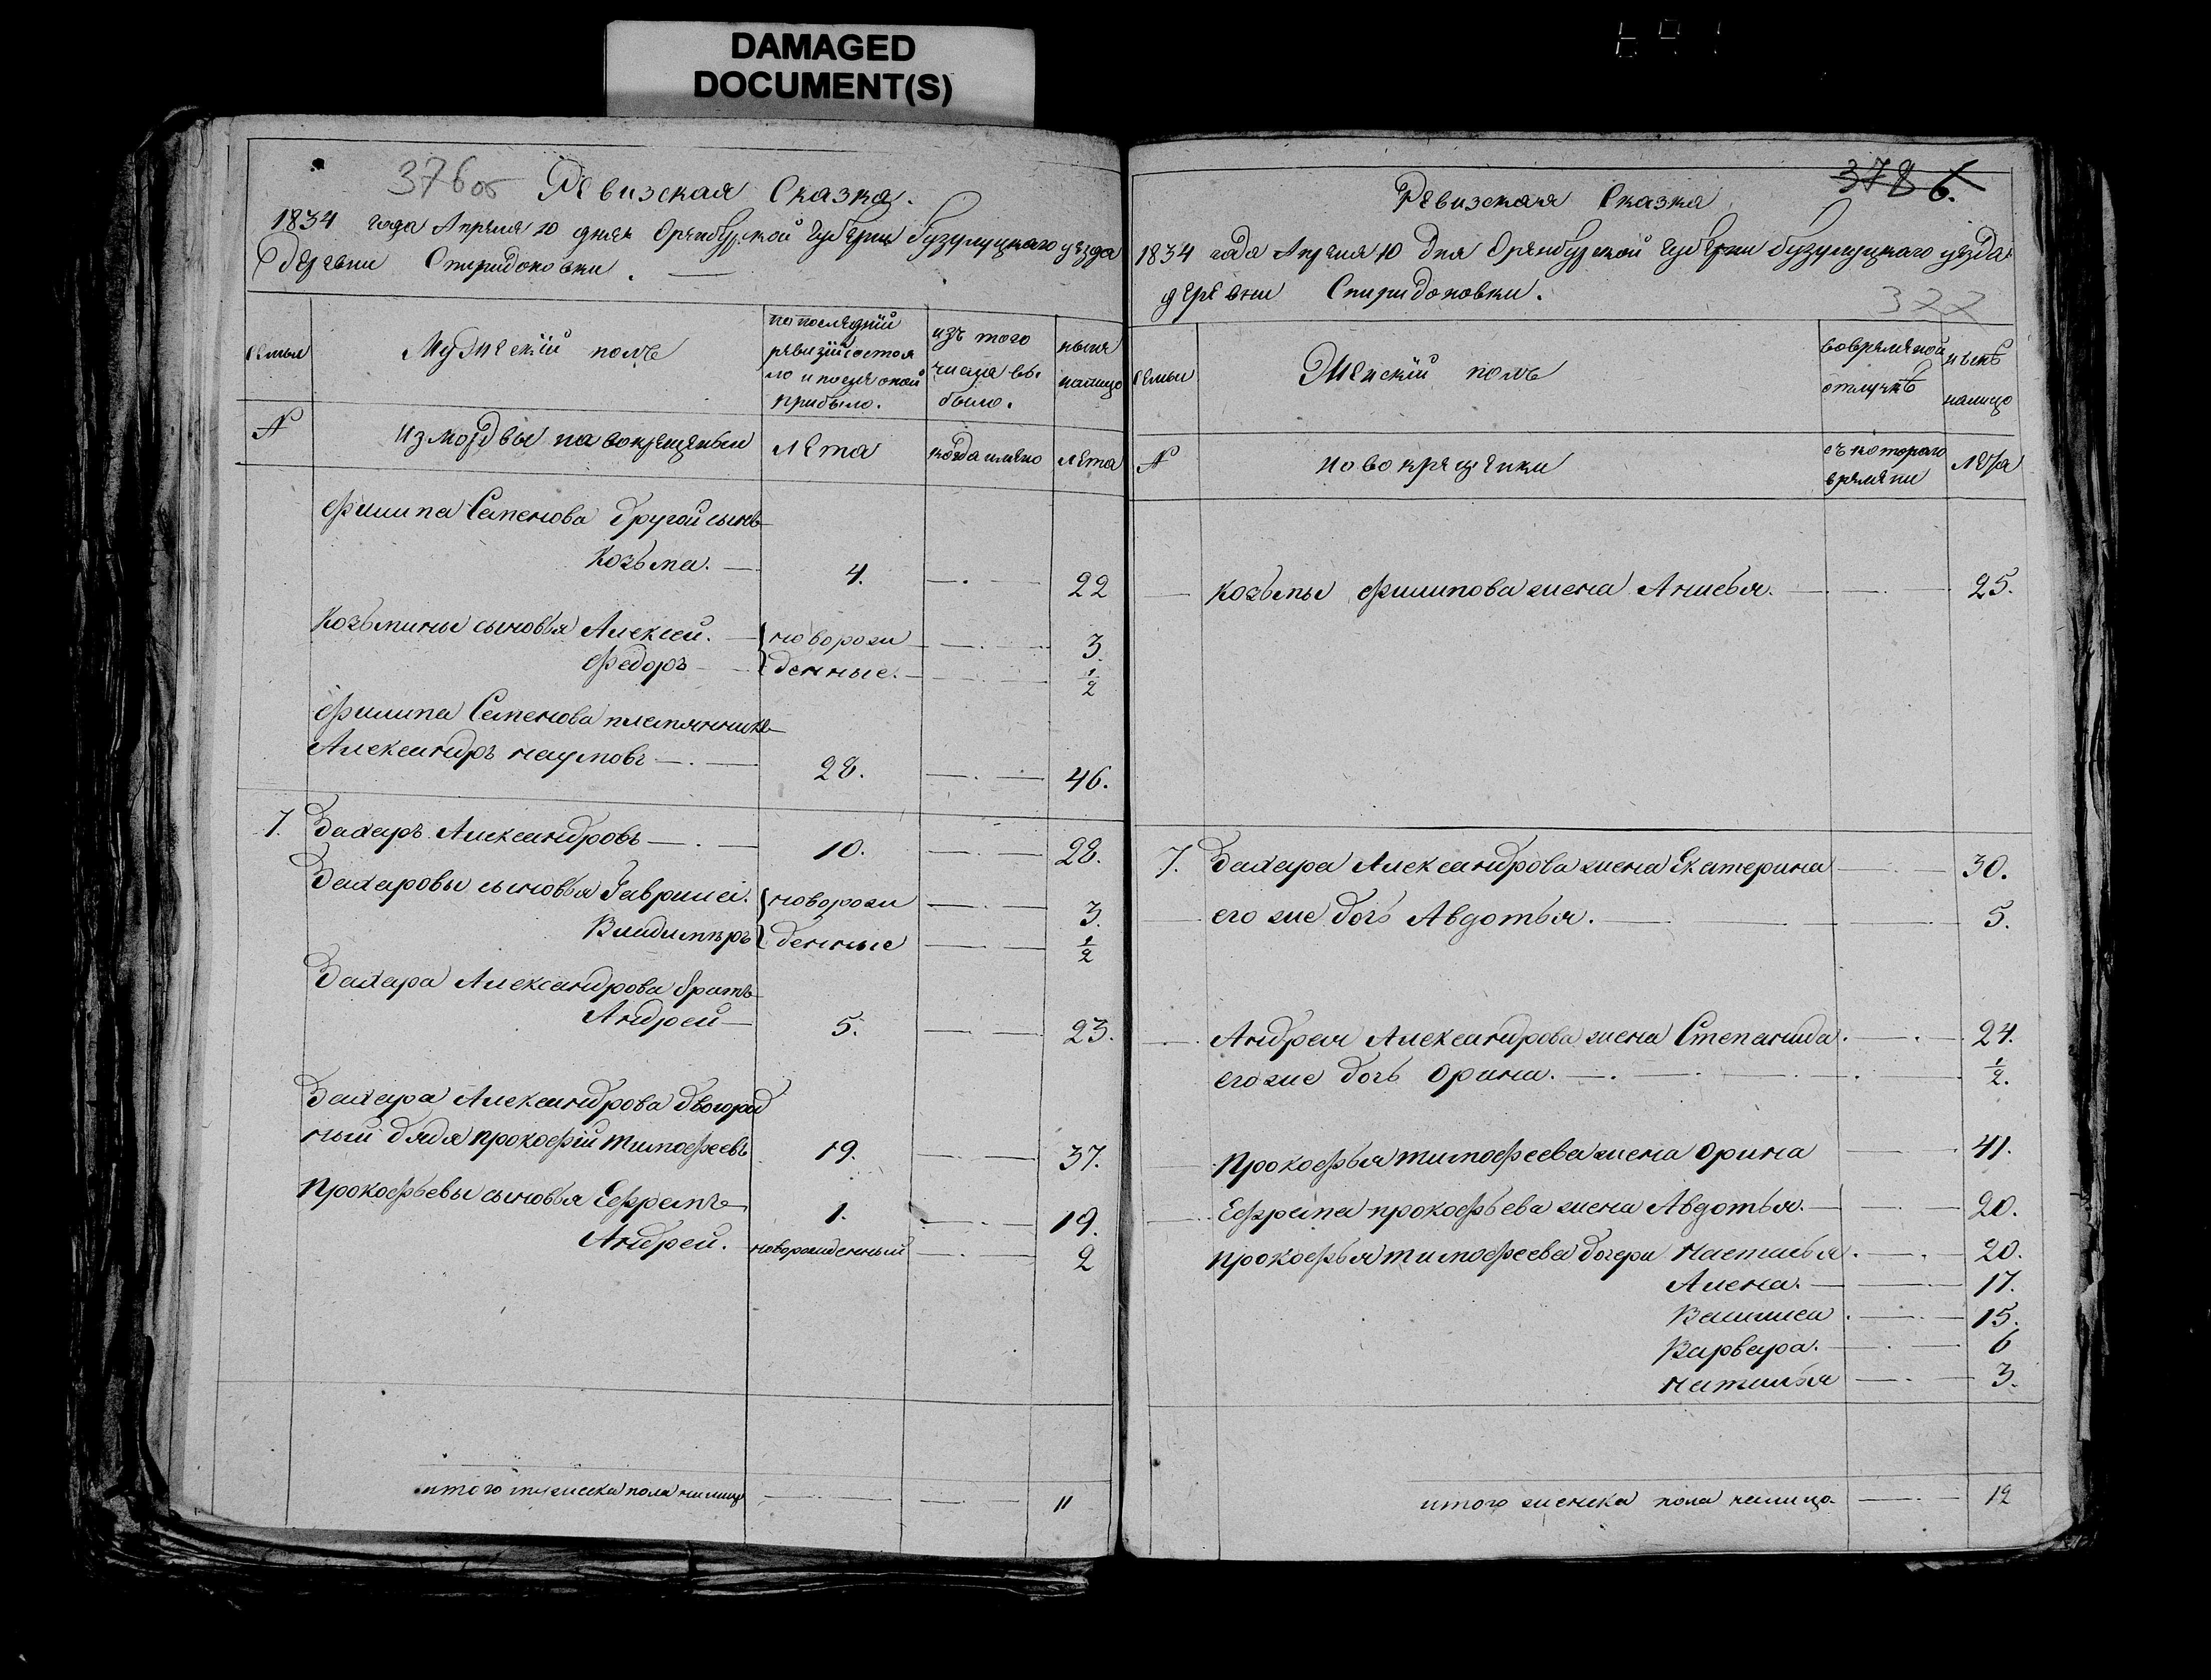 DAMAGED
DOCUMENT(S)
376об
Ревизская Сказка.
1834 года Апреля 10 дня Оренбургской губерни бузулуцкаго уезда
деревни Спиридоновки.
семьи
Мужескїй полъ
по последнїй ревизїи состояло и после оной прибыло.
изъ того числа выбыло.
ныня налицо
№
из мордвы новокрещены
лета
когда имяно
лета
Филипа Семенова другой сынъ
Козьма.
4.
22
Козьмины сыновья Алексей.
новорож
3.
Федоръ
денные.
1/2
Филипа Семенова племянникъ
Александръ наумовъ
28.
46.
7.
Захаръ Александровъ
10.
28.
Захаровы сыновья Гаврила.
новорож
3.
Владимиръ
денные
1/2
Захара Александрова братъ
Андрей
5.
23.
Захара Александрова двоюрод
ный дядя прокофїй тимофеевъ
19.
37.
Прокофьевы сыновья Ефремъ
1.
19.
Андрей.
новорожденный
2
итого мужеска пола налицо
11
378
6.
Ревизская Сказка
1834 года Апреля 10 дня Оренбургской губерни бузулуцкаго уезда
деревни Спиридоновки.
322
семьи
Женскїй полъ
во времяной отлучкѣ
нынѣ налицо
№
новокрещенки
съ котораго времяни
лета
Козьмы филипова жена Анисья.
25.
7.
Захара Александрова жена Екатерина
30.
его же дочь Авдотья.
5.
Андрея Александрова жена Степанида.
24.
его же дочь Орина.
1/2.
прокофья тимофеева жена Орина
41.
Ефрема прокофьева жена Авдотья.
20.
прокофья тимофеева дочери Настасья.
20.
Алена.
17.
Василиса.
15.
Варвара.
6
Наталья
3.
итого женска пола налицо.
12